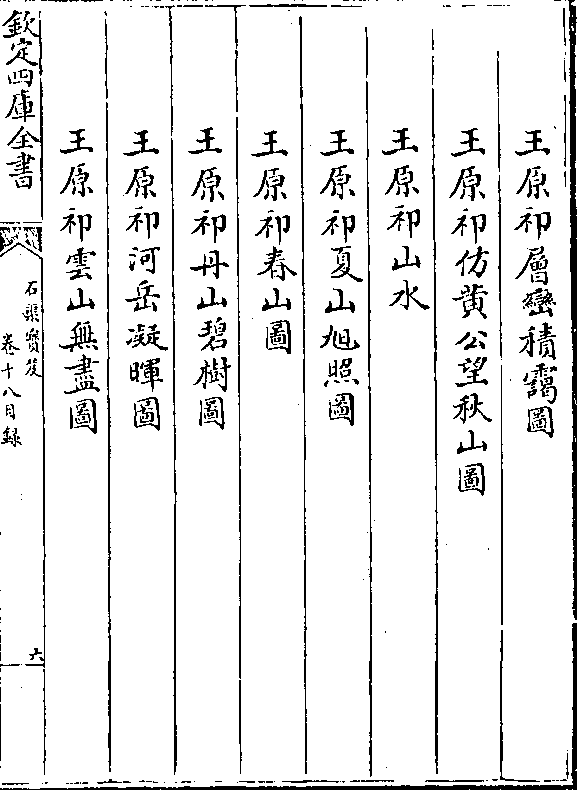 王原祁層巒積靄圖
王原祁仿黄公望秋山圖
王原祁山水
王原祁夏山旭照圖
王原祁春山圖
王原祁丹山碧樹圖
王原祁河岳凝暉圖
王原祁雲山無盡圖
欽定四庫全書
石渠寳笈
卷十八目録
六